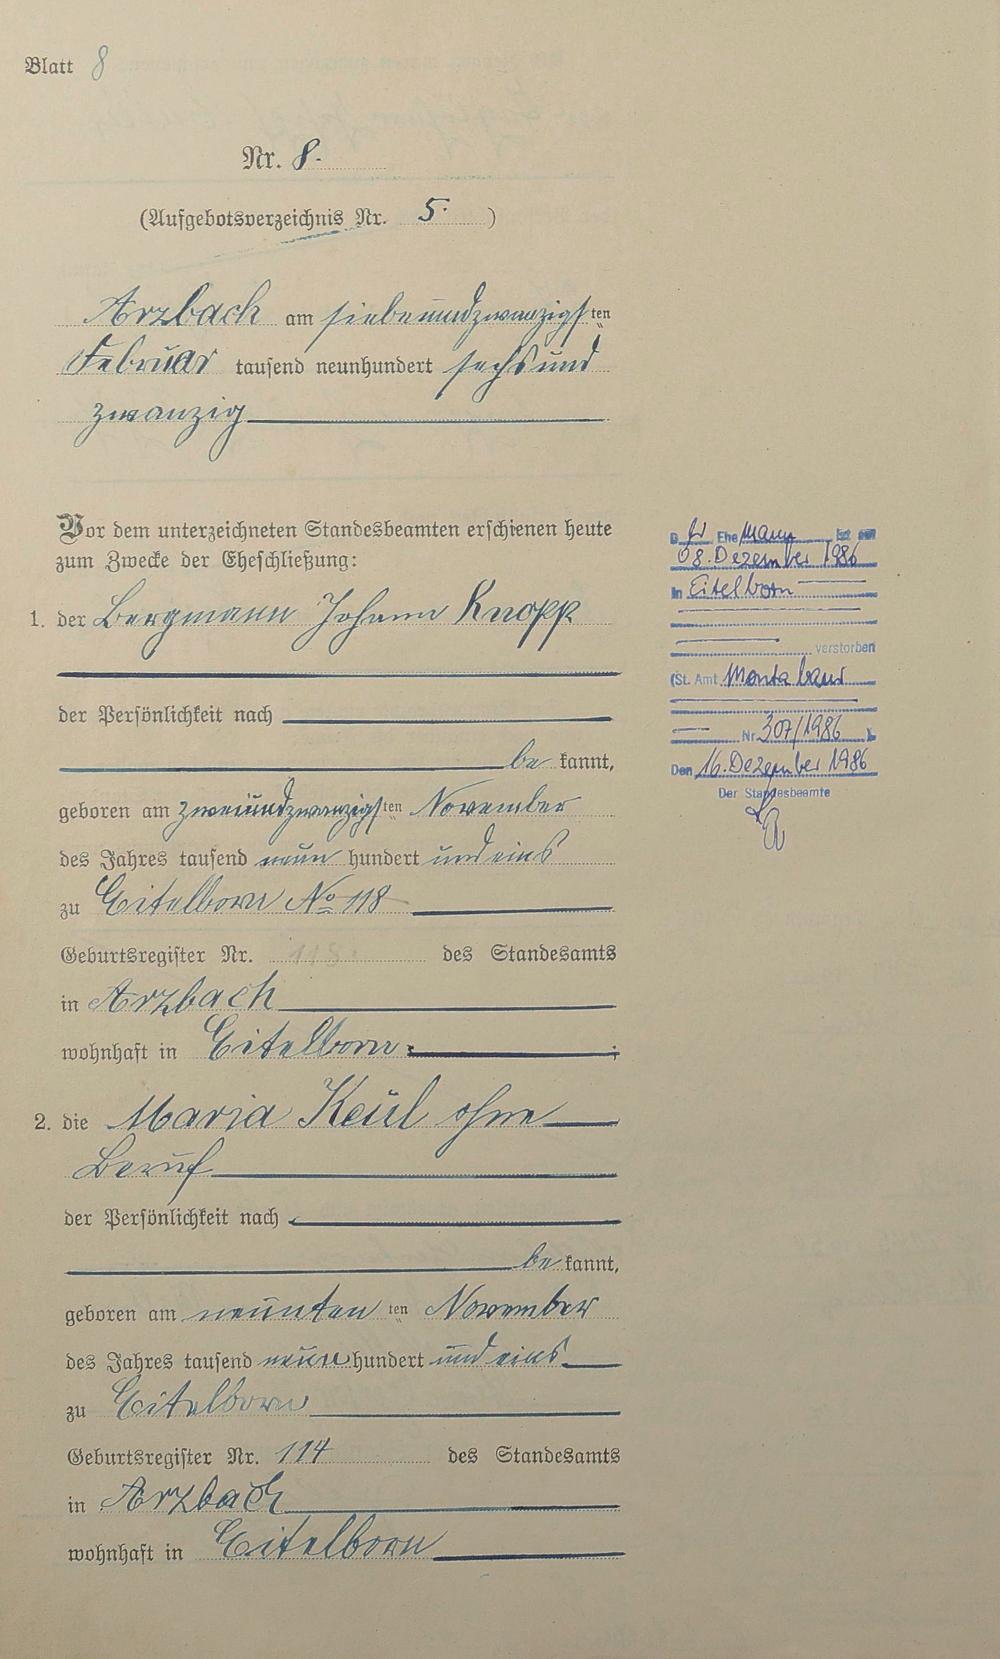 Blatt 8
Nr. 8.
(Aufgebotsverzeichnis Nr. 5.)
Arzbach am siebenundzwanzigsten
Februar tausend neunhundert sechsund
zwanzig
Vor dem unterzeichneten Standesbeamten erschienen heute
zum Zwecke der Eheschließung:
1. der Bergmann Johann Knopp
der Persönlichkeit nach
be kannt,
geboren am zweiundzwanzigsten November
des Jahres tausend neun hundert und eins
zu Eitelborn No 118
Geburtsregister Nr. 118. des Standesamts
in Arzbach
wohnhaft in Eitelborn
2. die Maria Keul ohne
Beruf
der Persönlichkeit nach
be kannt,
geboren am neunten ten November
des Jahres tausend neun hundert und eins
zu Eitelborn
Geburtsregister Nr. 114 des Standesamts
in Arzbach
wohnhaft in Eitelborn
D er Ehe Mann ist am
08. Dezember 1986
in Eitelborn
verstorben
(St. Amt Montabaur
Nr 307/1986 )
Den 16. Dezember 1986
Der Standesbeamte